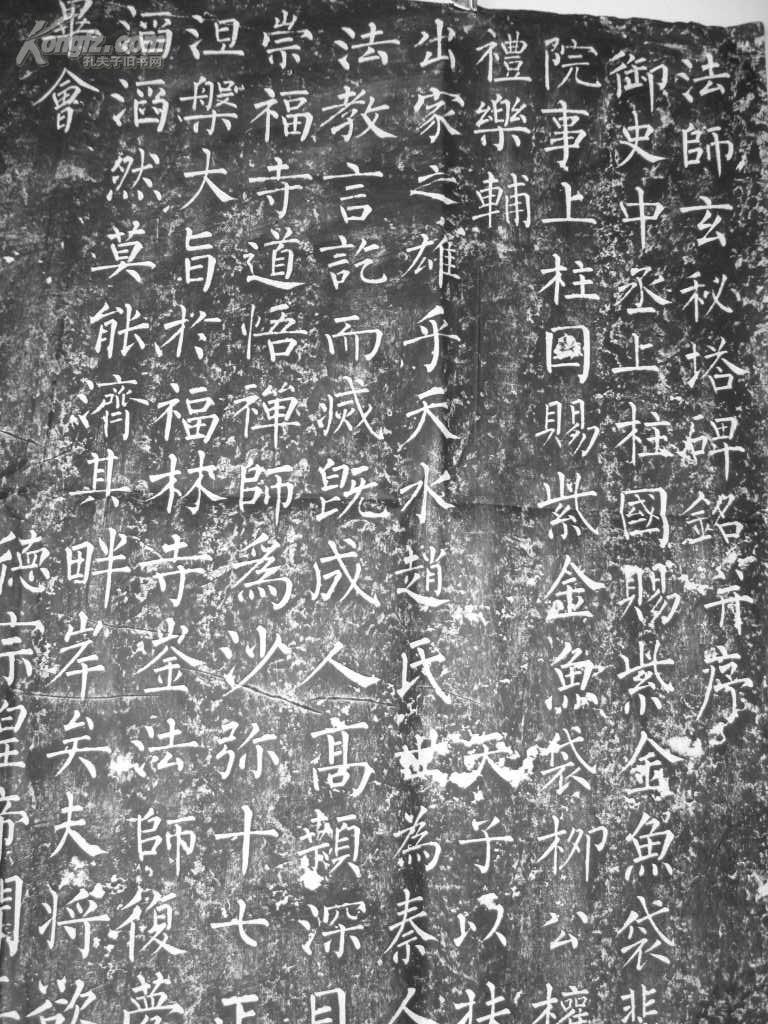 法師玄秘塔碑銘并序
御史中丞上柱國賜紫金魚袋裴
院事上柱國賜紫金魚袋柳公權
禮樂輔 天子以扶
出家之雄乎天水趙氏世為秦人
法教言訖而滅既成人高顙深目
崇福寺道悟禪師為沙弥十七正
涅槃大旨於福林寺崟法師復夢
滔滔然莫能濟其畔岸矣夫將欲
畢會
德宗皇帝聞
Kongfz.com
孔夫子旧书网